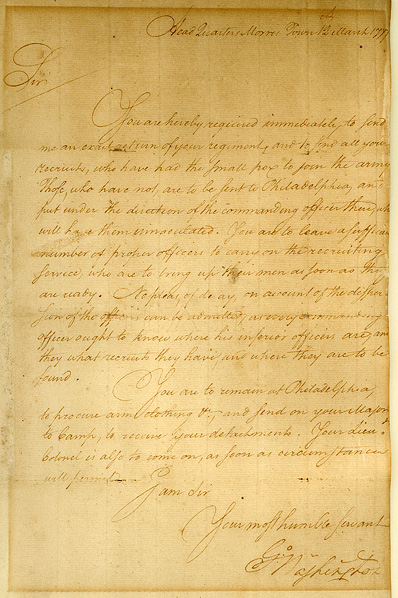 Head Quarters Morris Town 12th March 1777
Sir
You are hereby required immediately to send
me an exact return of your regiment, and to send all your
recruits, who have had the small pox to join the army
Those, who have not, are to be sent to Philadelphia, and
put under the direction of the commanding officer there, who
will have them innoculated. You are to leave a sufficient
number of proper officers to carry on the recruiting
service, who are to bring up their men as soon as they
are ready. No pleas, of delay, on account of the disper
sion of the officers can be admitted, as every commanding
officer ought to know where his inferior officers are, and
they what recruits they have and where they are to be
found.
You are to remain at Philadelphia,
to procure arms, clothing &c, and send on your Major
to Camp, to receive your detachments. Your Lieut
Colonel is also to come on, as soon as circumstances
will permit
I am Sir
Your most humble servant
Go Washington